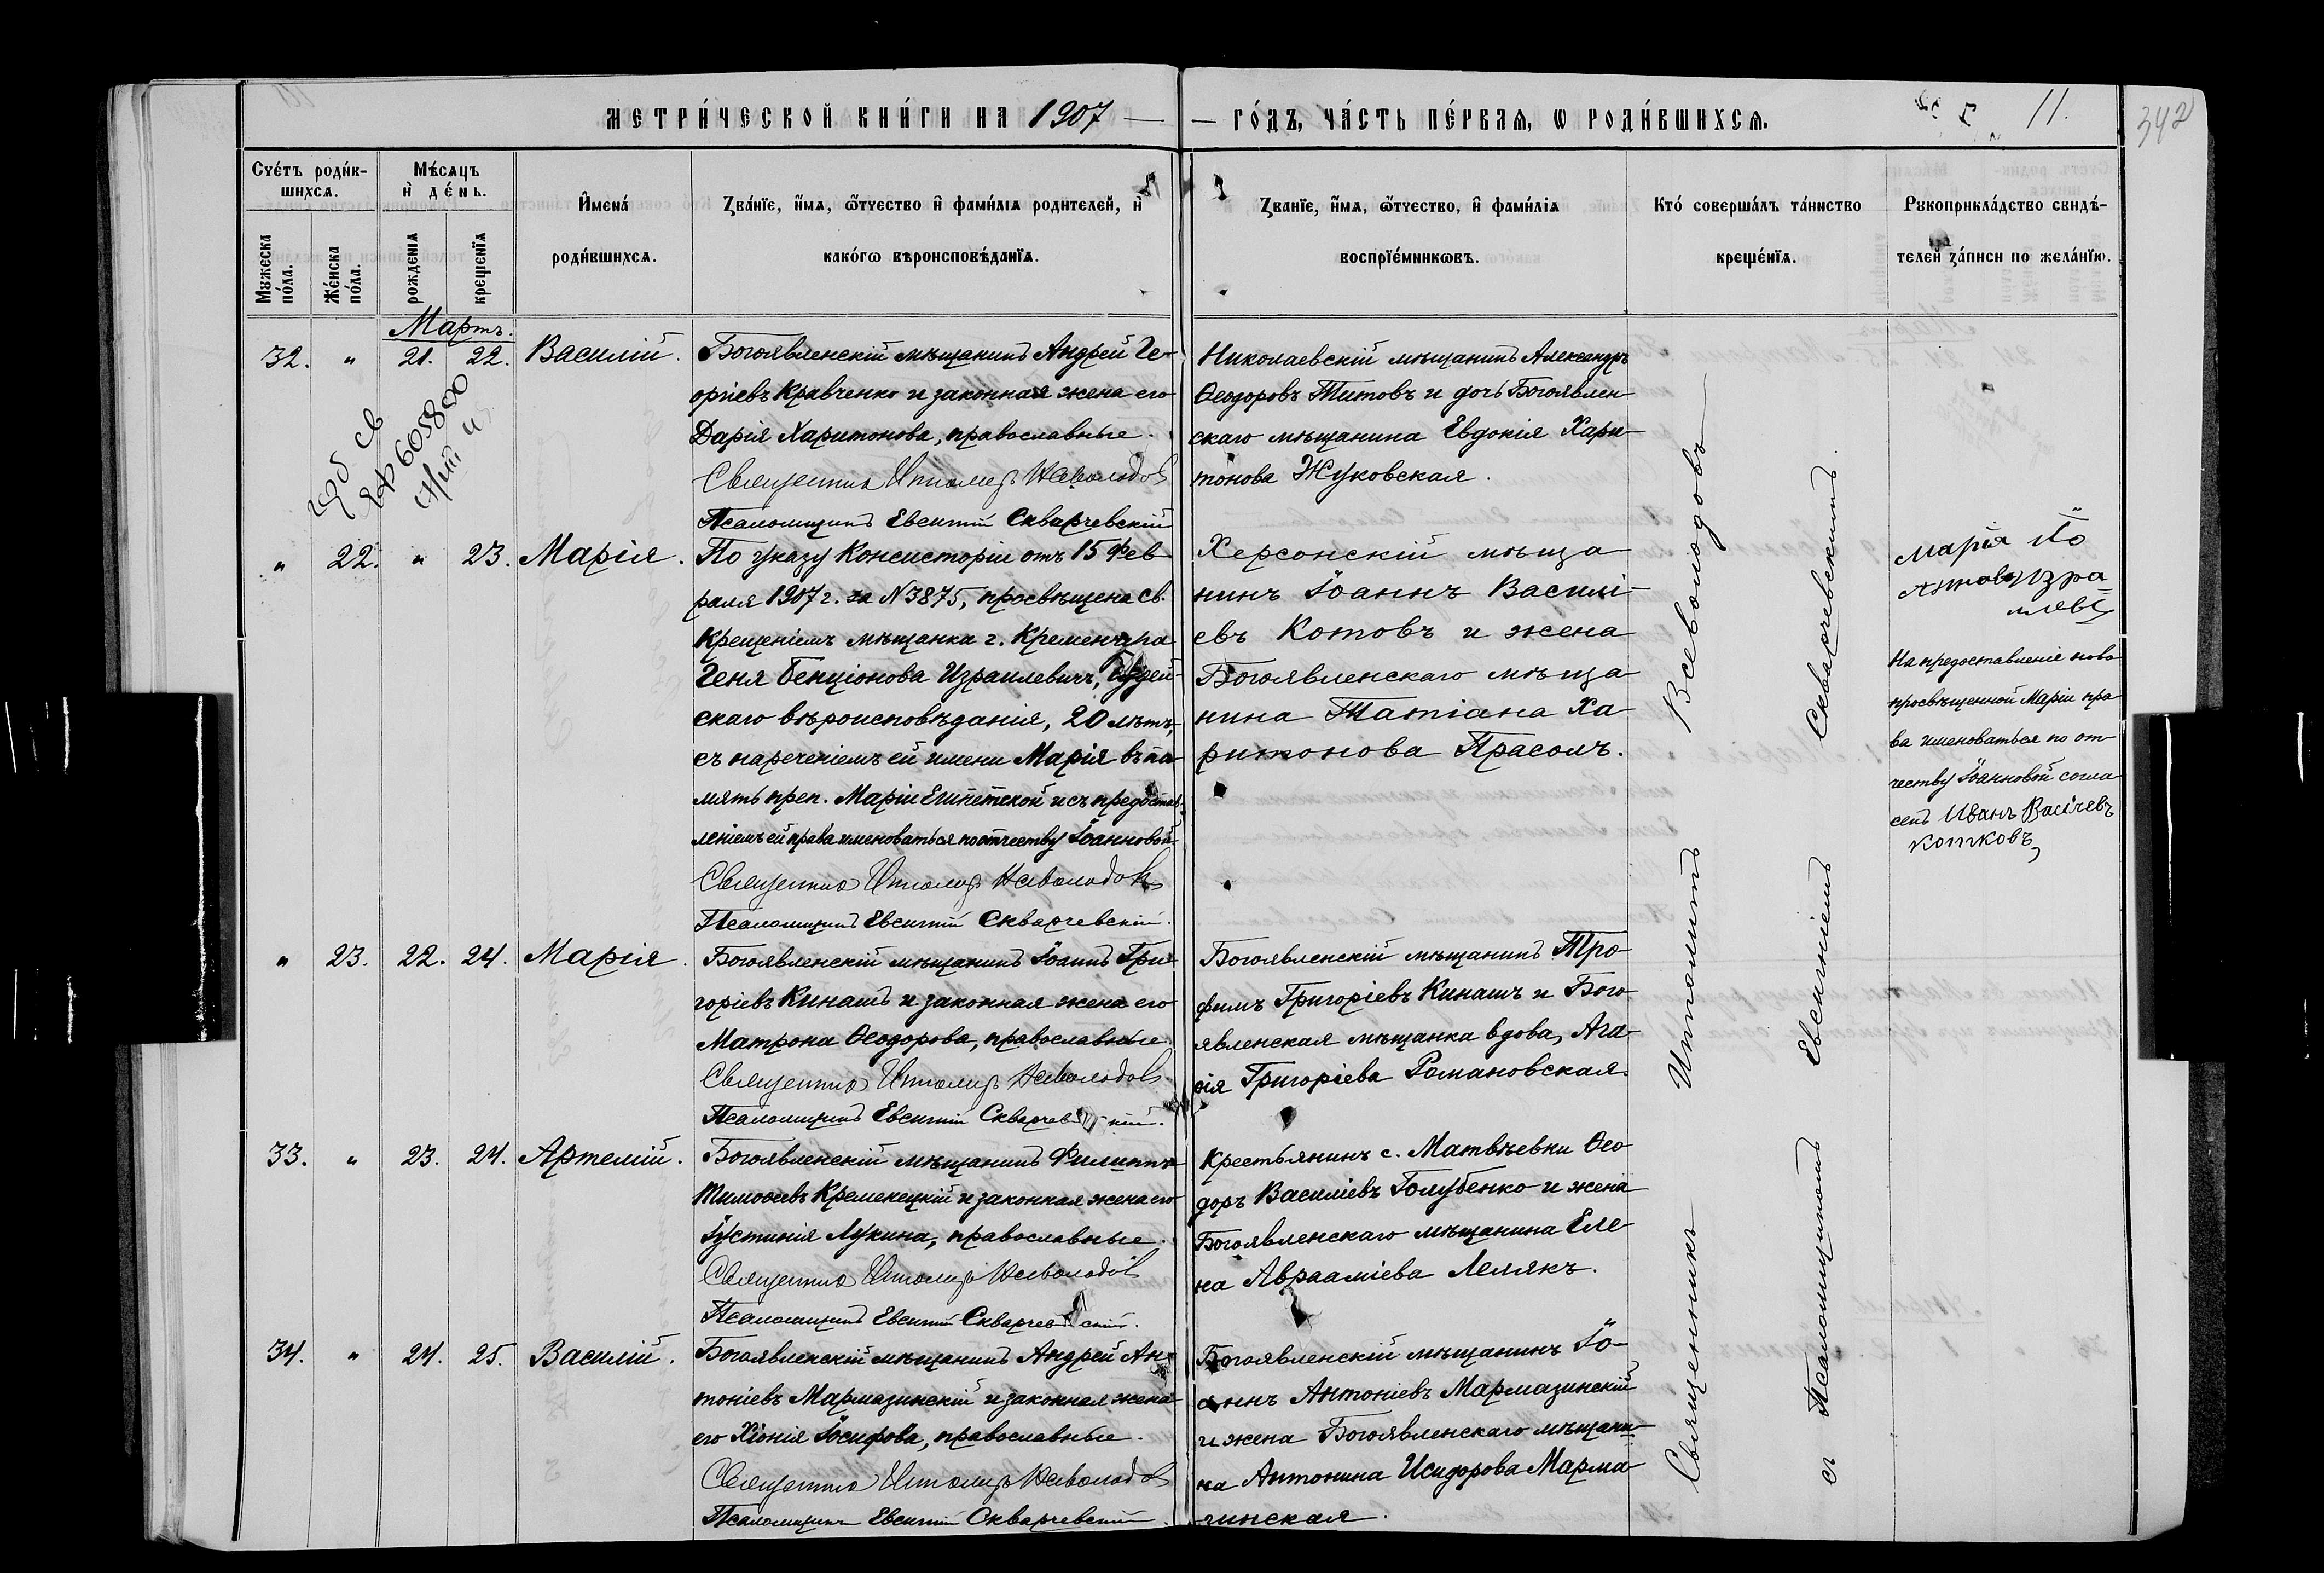 МЕТРИ́ЧЕСКОЙ КНИ́ГИ НА 1907 — — ГО́ДЪ, ЧА́СТЬ ПЕ́РВАѦ, Ѡ РОДИ́ВШИХСѦ. 11. 342
Счéтъ роди́вшихсѧ.
Мꙋ́жеска по́ла.
Же́нска по́ла.
Мѣ́сѧцъ и҆ де́нь.
рожденїѧ
крещенїѧ
И҆мена́ роди́вшихсѧ.
Зва́нїе, и҆́мѧ, ѻ҆́тчество и҆ фами́лїѧ родителей, и҆
како́гѡ вѣроисповѣ́данїѧ.
Зва́нїе, и҆́мѧ, ѻ҆́тчество, и҆ фами́лїѧ
воспрїе́мникѡвъ.
Кто́ соверша́лъ та́инство
креще́нїѧ.
Рꙋкоприкла́дство свидѣ́-
телей за́писи по жела́нїю.
Мартъ.
32. " 21. 22. Василій.
Богоявленскій мѣщанинъ Андрей Ге-
оргіевъ Кравченко и законная жена его
Дарія Харитонова, православные.
Священникъ Ипполитъ Всеволодовъ
Псаломщикъ Евсигній Скварчевскій
Николаевскій мѣщанинъ Александръ
Ѳеодоровъ Титовъ и дочь Богоявлен-
скаго мѣщанина Евдокія Хари-
тонова Жуковская.
605800
" 22. " 23. Марія.
По указу Консисторіи отъ 15 Фев-
раля 1907 г. за №3875, просвѣщена Св.
Крещеніемъ мѣщанка г. Кременчуга
Геня Бенціонова Израилевичъ, Іудей-
скаго вѣроисповѣданія, 20 лѣтъ,
съ нареченіемъ ей имени Марія въ па-
мять преп. Маріи Египетской и съ предостав-
леніемъ ей права именоваться по отчеству Іоанновой
Священникъ Ипполитъ Всеволодовъ
Псаломщикъ Евсигній Скварчевскій.
Херсонскій мѣща-
нинъ Іоаннъ Василі-
евъ Котовъ и жена
Богоявленскаго мѣща-
нина Татіана Ха-
ритонова Прасолъ.
Марія
На предоставленіе ново-
просвѣщенной Маріи пра-
ва именоваться по от-
честву Іоанновой согла-
сенъ Иванъ
котковъ
" 23. 22. 24. Марія.
Богоявленскій мѣщанинъ Іоаннъ Гри-
горіевъ Кинашъ и законная жена его
Матрона Ѳеодорова, православные.
Священникъ Ипполитъ Всеволодовъ
Псаломщикъ Евсигній Скварчевскій.
Богоявленскій мѣщанинъ Тро-
фимъ Григоріевъ Кинашъ и Бого-
явленская мѣщанка вдова, Ага-
ѳія Григоріева Романовская.
33. " 23. 24. Артемій.
Богоявленскій мѣщанинъ Филиппъ
Тимоѳеевъ Кременецкій и законная жена его
Іустинія Лукина, православные.
Священникъ Ипполитъ Всеволодовъ
Псаломщикъ Евсигній Скварчевскій.
Крестьянинъ с. Матвѣевки Ѳео-
доръ Василіевъ Голубенко и жена
Богоявленскаго мѣщанина Еле-
на Аврааміева Лемякъ.
34. " 24. 25. Василій.
Богоявленскій мѣщанинъ Андрей Ан-
тоніевъ Мармазинскій и законная жена
его Хіонія Іосифова, православные.
Священникъ Ипполитъ Всеволодовъ
Псаломщикъ Евсигній Скварчевскій.
Богоявленскій мѣщанинъ Іо-
аннъ Антоніевъ Мармазинскій
и жена Богоявленскаго мѣщани-
на Антонина Исидорова Марма-
зинская.
Священникъ Ипполитъ Всеволодовъ
съ Псаломщикомъ Евсигніемъ Скварчевскимъ.